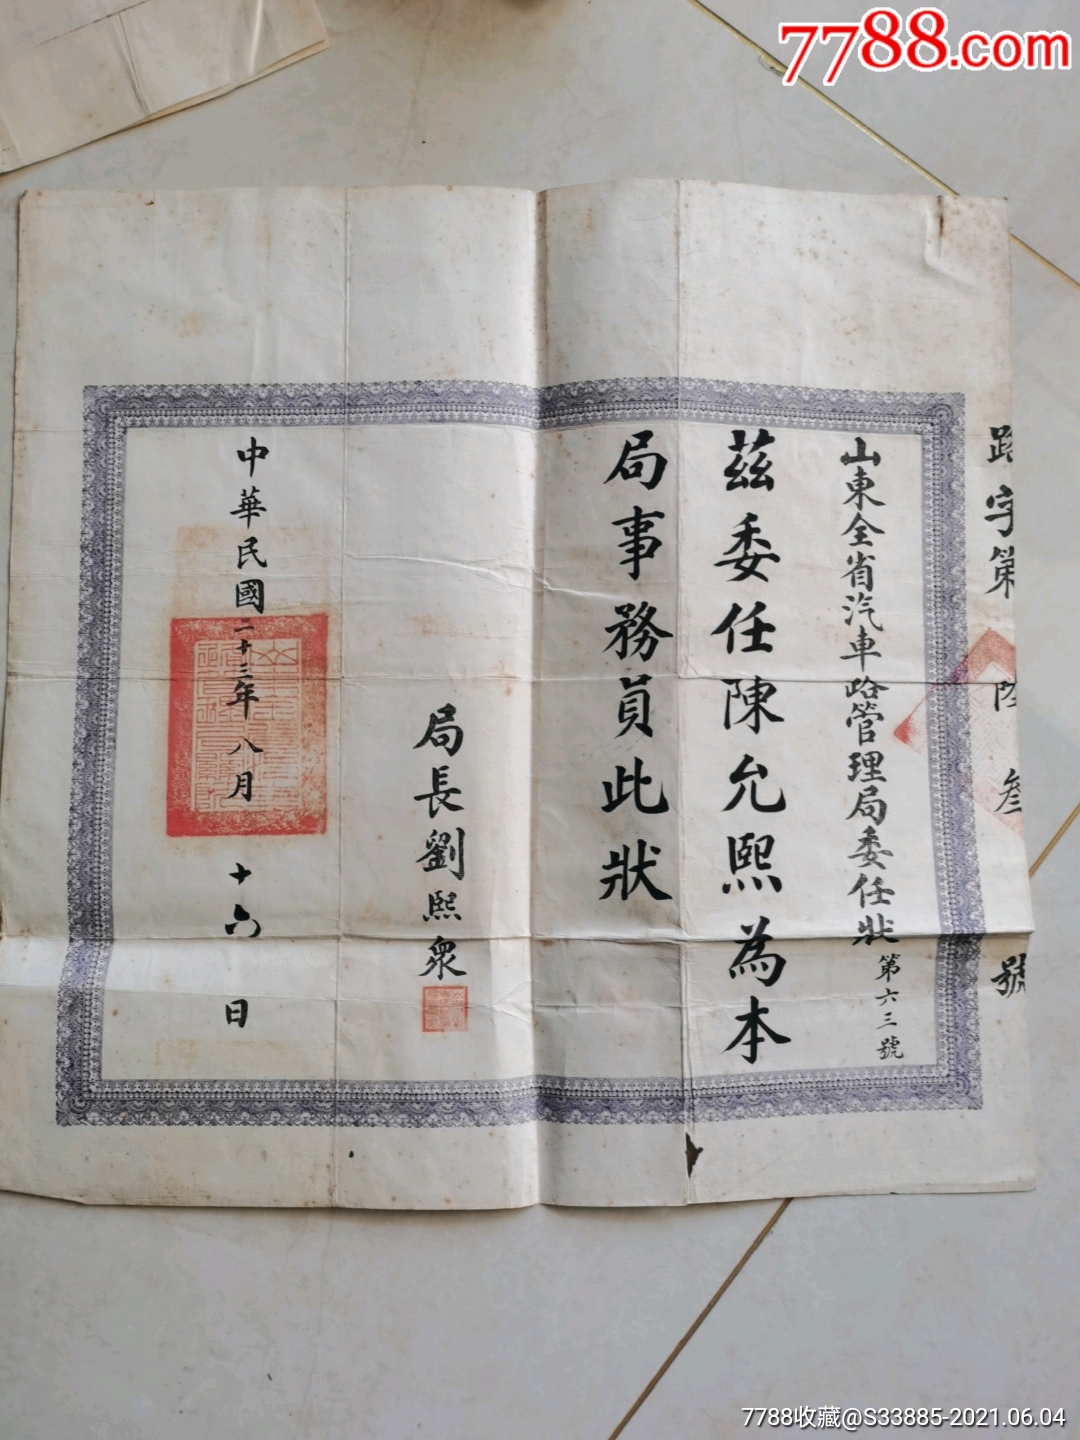 7788.com
路字第陸叁號
山東全省汽車路管理局委任狀第六三號
茲委任陳允熙為本
局事務員此狀
局長劉熙衆
中華民國二十三年八月十六日
7788收藏@S33885-2021.06.04